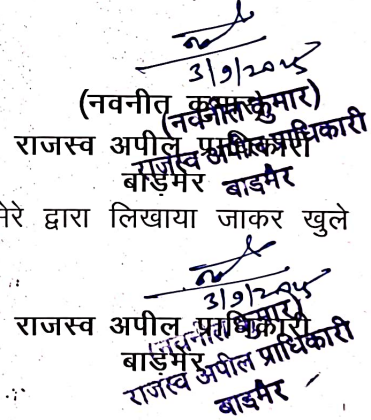 3/9/2025
(नवनीत कुमार)
(नवनीत कुमार)
राजस्व अपील प्राधिकारी
राजस्व अपील प्राधिकारी
बाड़मेर
बाडमेर
मेरे द्वारा लिखाया जाकर खुले
3/9/2025
(नवनीत कुमार)
राजस्व अपील प्राधिकारी
राजस्व अपील प्राधिकारी
बाड़मेर
बाडमेर